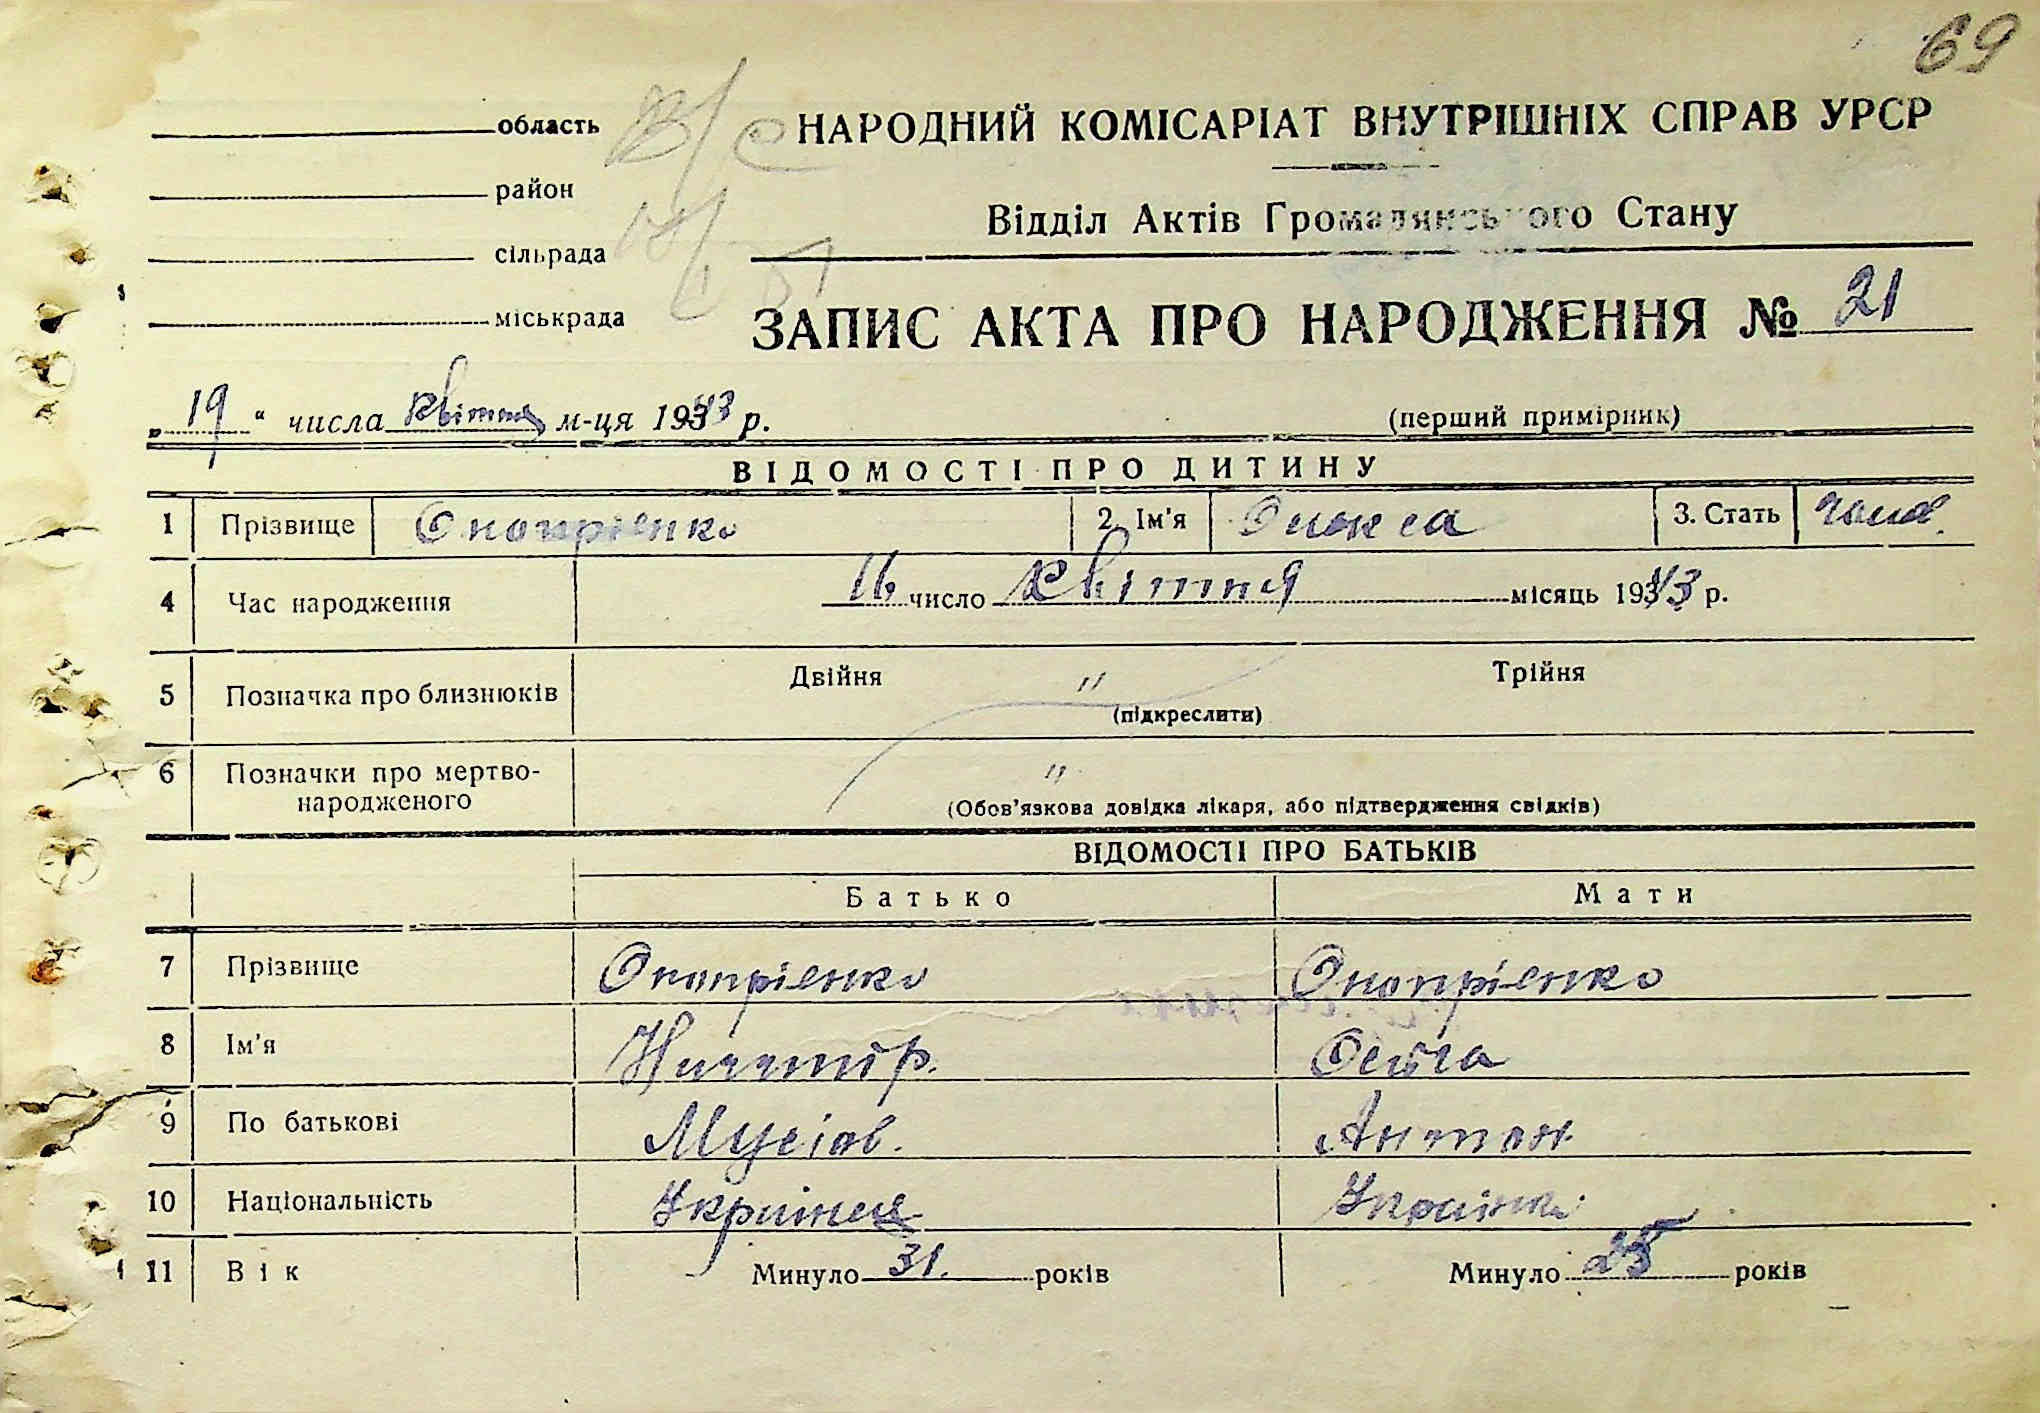 69
область
НАРОДНИЙ КОМІСАРІАТ ВНУТРІШНІХ СПРАВ УРСР
район
Відділ Актів Громадянського Стану
сільрада
міськрада
ЗАПИС АКТА ПРО НАРОДЖЕННЯ № 21
„19“ числа квітня м-ця 1943 р.
(перший примірник)
ВІДОМОСТІ ПРО ДИТИНУ
1 Прізвище Онопрієнко 2. Ім'я Олекса 3. Стать чолов.
4 Час народження 16 число квітня місяць 1943 р.
5 Позначка про близнюків Двійня " Трійня
(підкреслити)
6 Позначки про мертво-
народженого "
(Обов'язкова довідка лікаря, або підтвердження свідків)
ВІДОМОСТІ ПРО БАТЬКІВ
Батько Мати
7 Прізвище Онопрієнко Онопрієнко
8 Ім'я
9 По батькові Мусіов. Антон
10 Національність Українец Українка
11 Вік Минуло 31. років Минуло 25 років